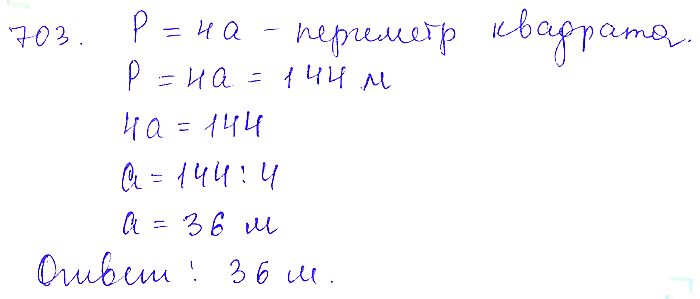 703. P = 4a - периметр квадрата.
P = 4a = 144 м
4a = 144
a = 144 : 4
a = 36 м
Ответ: 36 м.